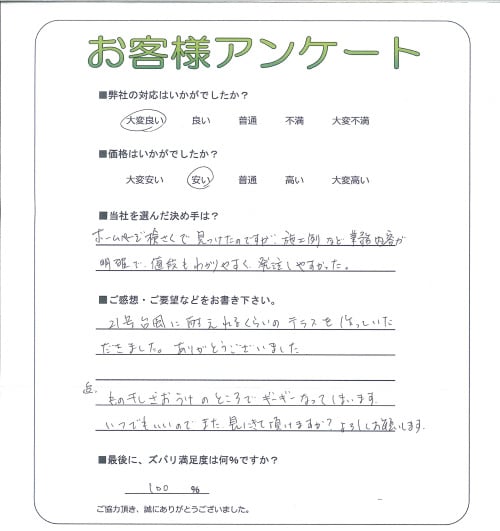 お客様アンケート
■弊社の対応はいかがでしたか？
大変良い 良い 普通 不満 大変不満
■価格はいかがでしたか？
大変安い 安い 普通 高い 大変高い
■当社を選んだ決め手は？
ホームページ検さくで見つけたのですが、施工例など業務内容が
明確で、値段もわかりやすく発注しやすかった。
■ご感想・ご要望などをお書き下さい。
21号台風に耐えれるくらいのテラスをはっていた
だきました。ありがとうございました
追.
ものほしざおうけのところでギーギーなってしまいます
いつでもいいのでまた見にきて頂けますか？よろしくお願いします.
■最後に、ズバリ満足度は何%ですか？
100 %
ご協力頂き、誠にありがとうございました。